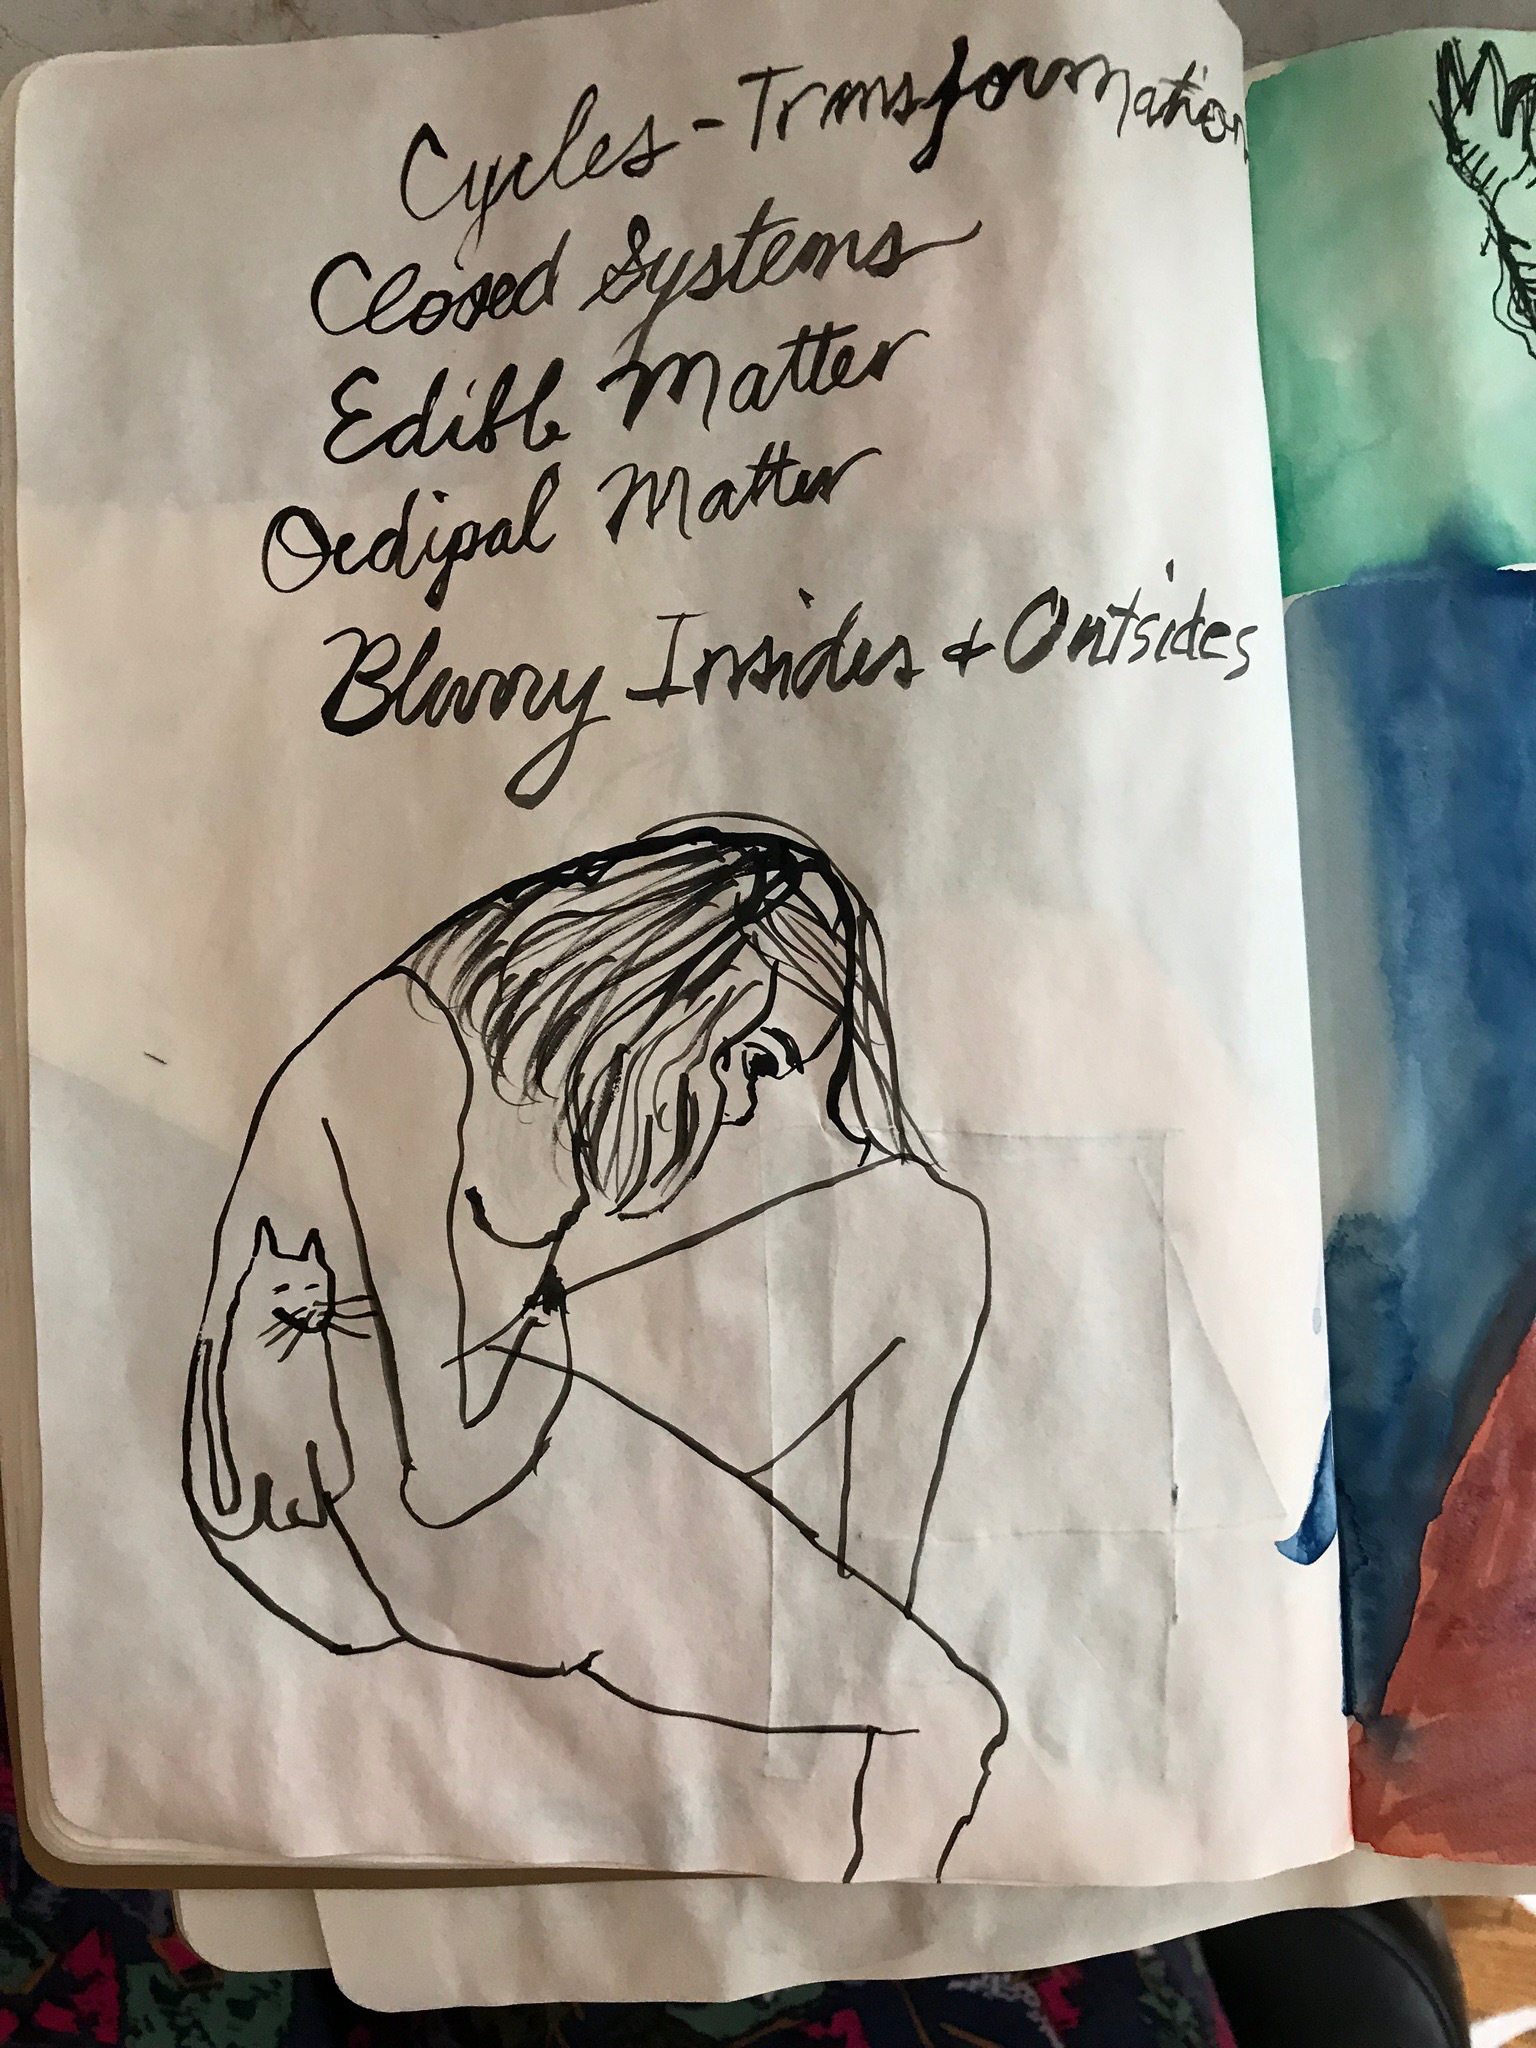 Cycles - Transformation
Closed Systems
Edible Matter
Oedipal Matter
Blurry Insides & Outsides